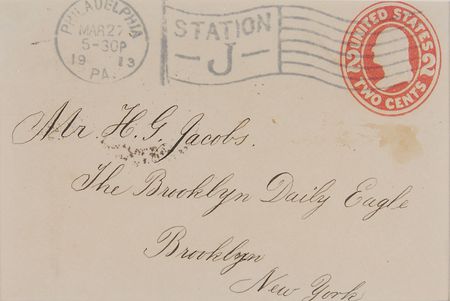 PHILADELPHIA
MAR 27
5-30P
1913
PA.
STATION
J
UNITED STATES
2 2
TWO CENTS
Mr. H. G. Jacobs.
The Brooklyn Daily Eagle
Brooklyn
New York